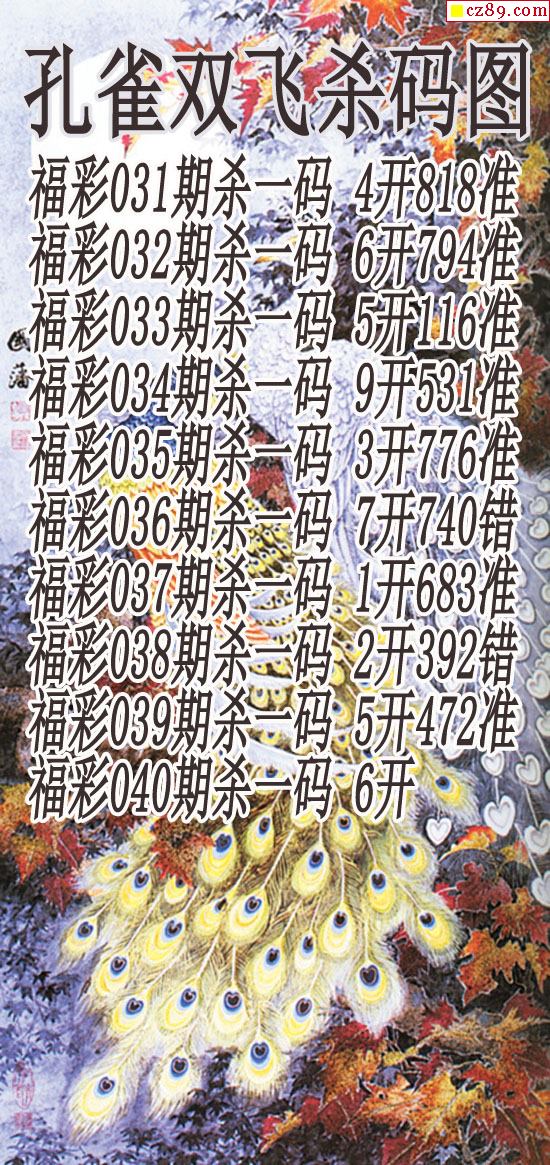 cz89.com
孔雀双飞杀码图
福彩031期杀一码 4开818准
福彩032期杀一码 6开794准
福彩033期杀一码 5开116准
福彩034期杀一码 9开531准
福彩035期杀一码 3开776准
福彩036期杀一码 7开740错
福彩037期杀一码 1开683准
福彩038期杀一码 2开392错
福彩039期杀一码 5开472准
福彩040期杀一码 6开